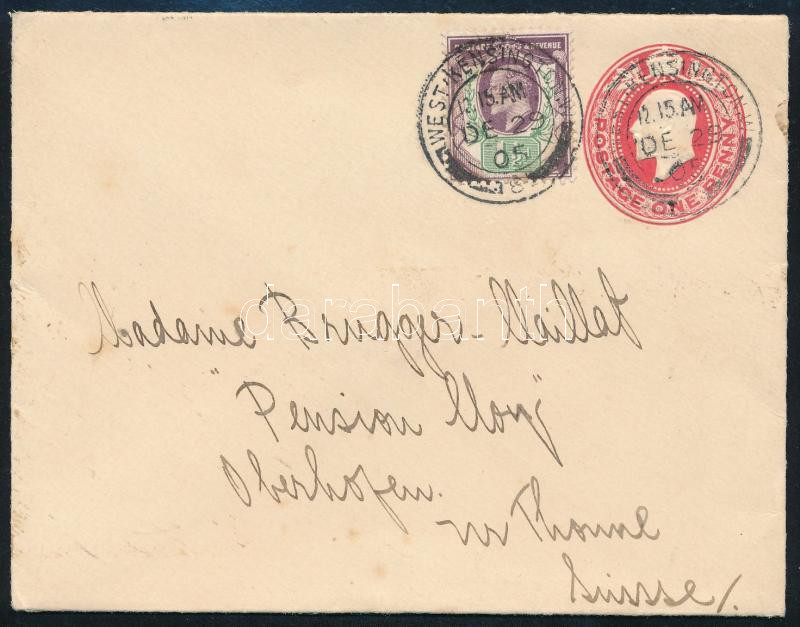 POSTAGE & REVENUE
WEST KENSINGTON
12.15.AM
DE 29
05
KENSINGTON.W
12.15.AM
DE 29
05
POSTAGE ONE PENNY
darabanth
Madame Brugger-Maillat
"Pension Moy"
Oberhofen.
nr Thoune
Suisse/.